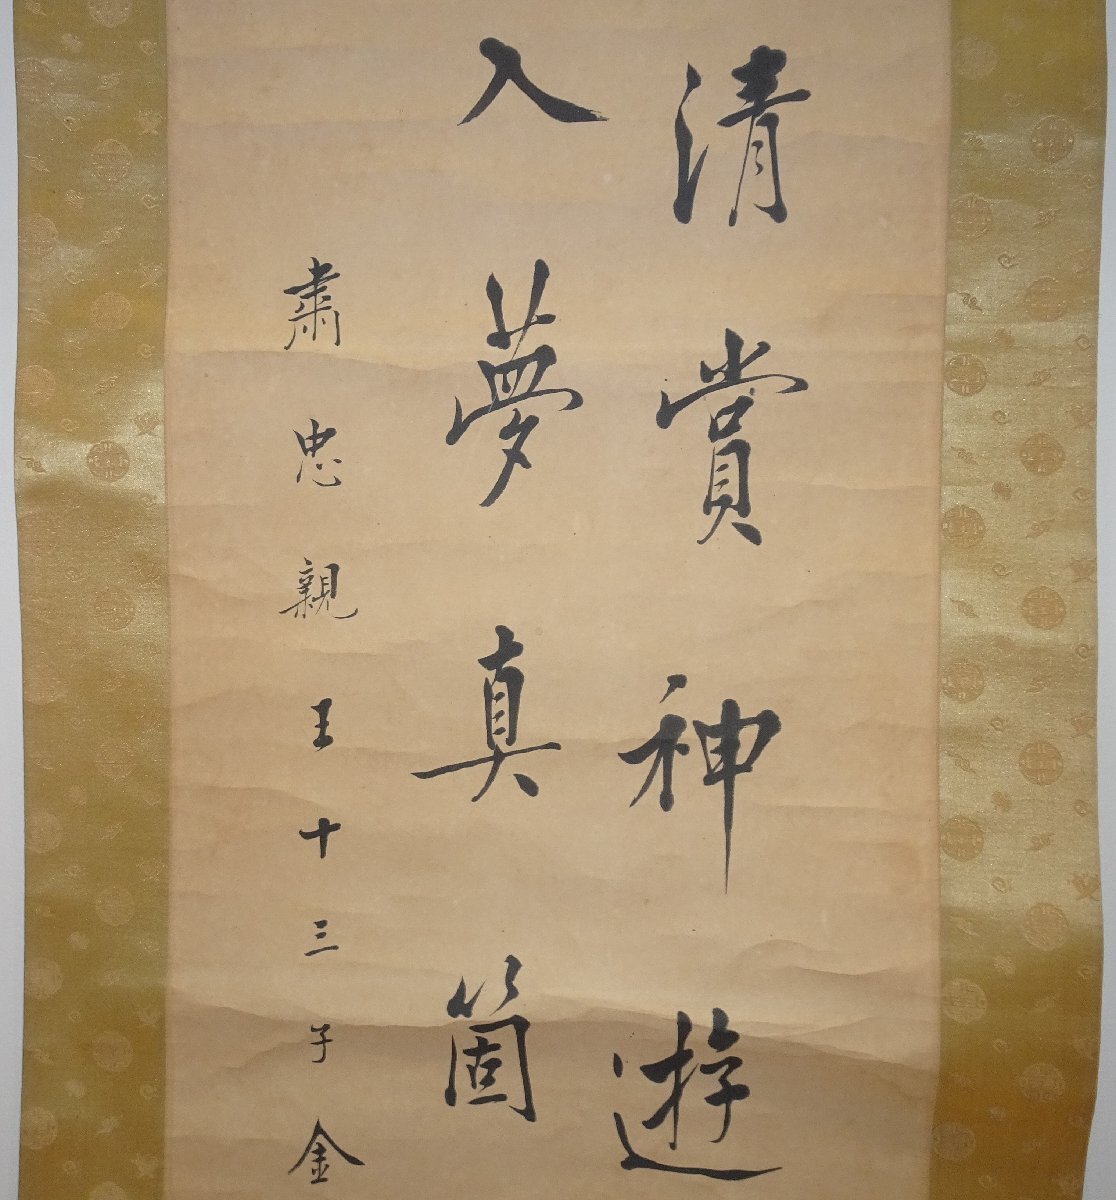 清賞神遊
入夢真箇
肅忠親王十三子金